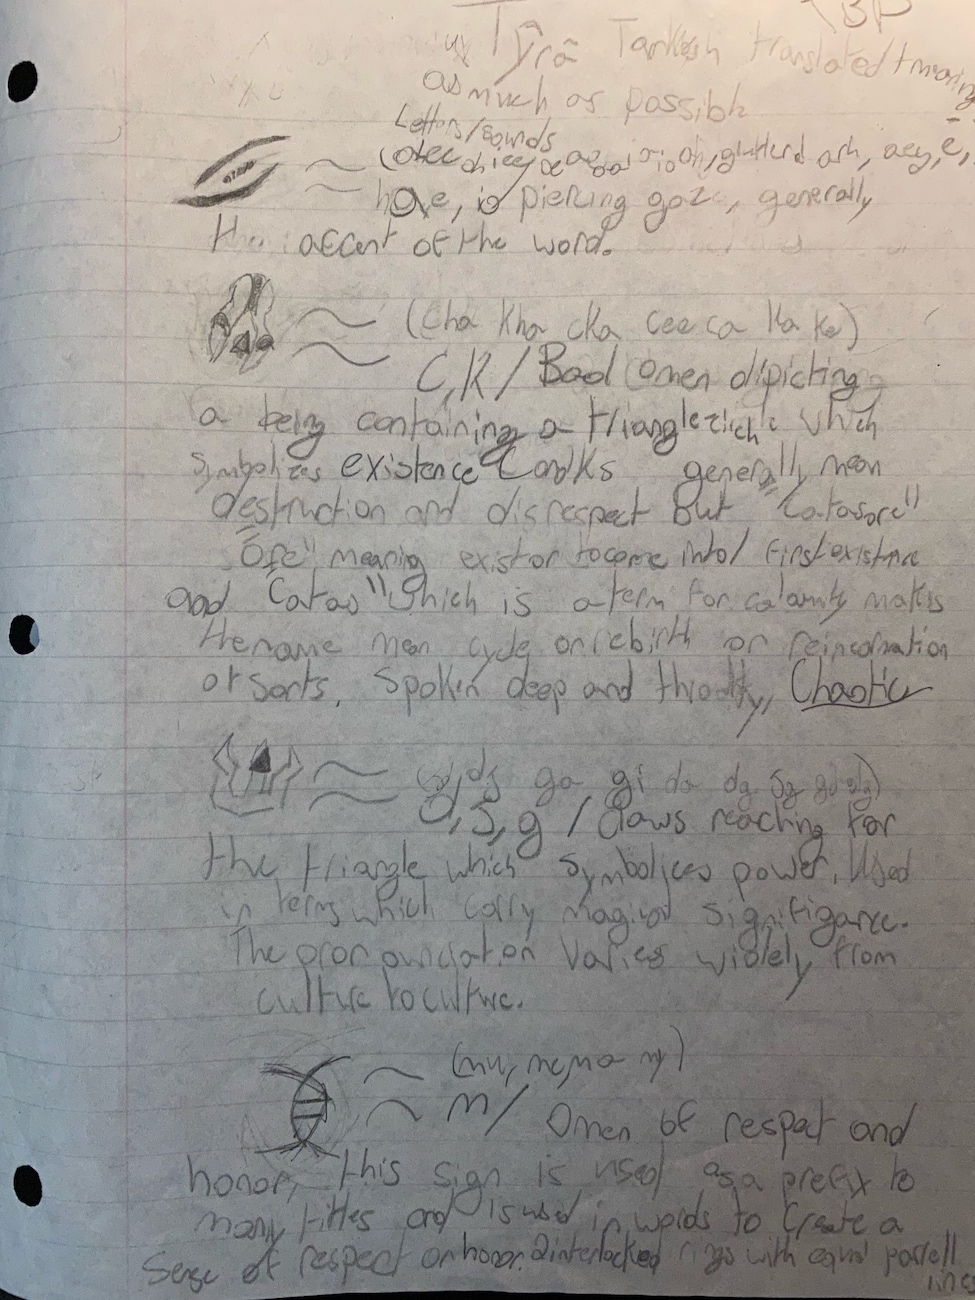 BP
Tŷrā Tarkesh translated + meaning
as much as possible
Letters/sounds
ash, aey, ē,
is piercing gaze, generally
the accent of the word.
(Cha kha cka cee ca ka ke)
C,K / Bad omen dipicting
a being containing a triangle which
symbolizes existence C and Ks generally mean
destruction and disrespect But "Catasore"
"Ore" meaning exist or to come into/first existence
and "Catas" which is a term for calamity makes
the name mean cycle or rebirth or reincarnation
of sorts. Spoken deep and throatty, Chaotic
ga gi da dg sg
d,s,g / Claws reaching for
the triangle which symbolices power. Used
in terms which carry magical signifigance.
The pronounciation varies widely from
culture to culture.
(mu, me, ma my)
m / Omen of respect and
honor, this sign is used as a prefix to
many titles and is used in words to create a
sense of respect or honor. 2 interlocked rings with equal parrell
lines